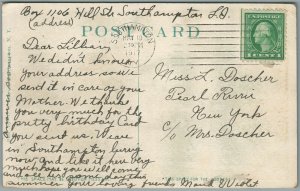 Box 1106 Hill St. Southampton L.I.
(address)
POST CARD
Dear Lillian,
We didn't know
your address so we
send it in care of your
Mother. We thank
you very much for the
pretty birthday Card
you sent us. We are
in Southampton
now and like it here very
much hope you will come
and see us some day this
summer your loving friends Maud & Violet
SOUTHAMPTON
1917
1 CENT 1
Miss L. Doscher
Pearl River
New York
c/o Mrs. Doscher